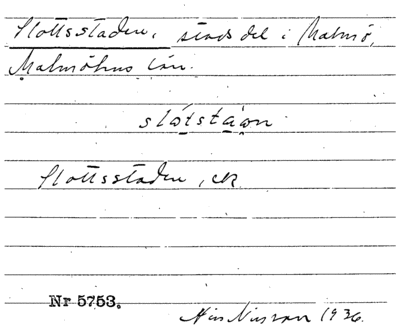 Slottsstaden, stadsdel i Malmö,
Malmöhus län.
slòtstáən
Slottsstaden, ek
Nr 5753.
Nils Nilsson 1936